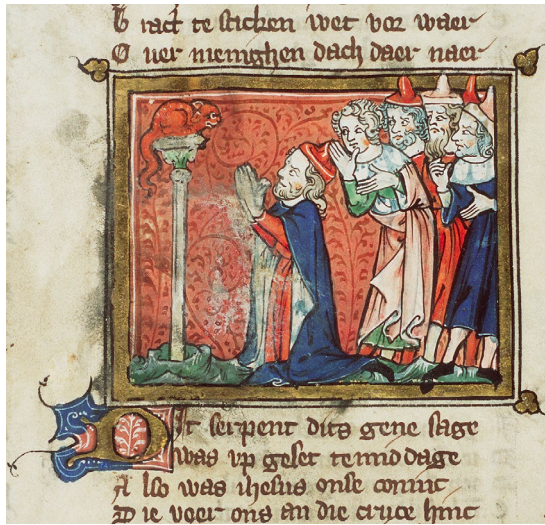 B ract te sticken wet vor waer
O uer menighen dach daer naer
Dit serpent dits gene sage
was vp geset temiddage
A lso was ihesus onse coninc
D ie voer ons an die cruce hinc